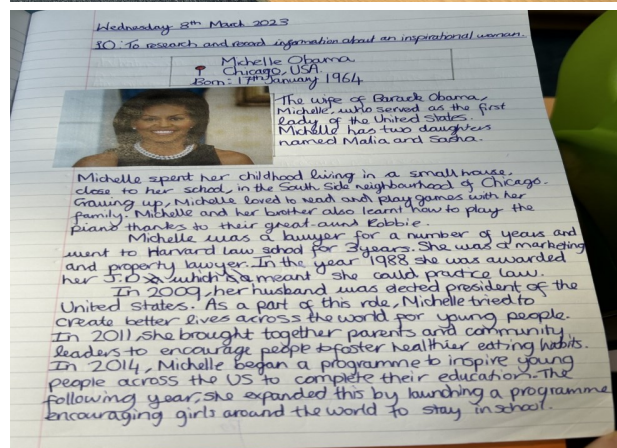 Wednesday 8th March 2023
LO: To research and record information about an inspirational woman.
Michelle Obama
Chicago, USA.
Born: 17th January 1964
The wife of Barack Obama,
Michelle, who served as the first
lady of the United States.
Michelle has two daughters
named Malia and Sasha.
Michelle spent her childhood living in a small house,
close to her school, in the South Side neighbourhood of Chicago.
Growing up, Michelle loved to read and play games with her
family. Michelle and her brother also learnt how to play the
piano thanks to their great-aunt Robbie.
Michelle was a lawyer for a number of years and
went to Harvard law school for 3 years. She was a marketing
and property lawyer. In the year 1988 she was awarded
her J.D which meant she could practice law.
In 2009, her husband was elected president of the
United states. As a part of this role, Michelle tried to
create better lives across the world for young people.
In 2011, she brought together parents and community
leaders to encourage people to foster healthier eating habits.
In 2014, Michelle began a programme to inspire young
people across the US to complete their education. The
following year, she expanded this by launching a programme
encouraging girls around the world to stay in school.